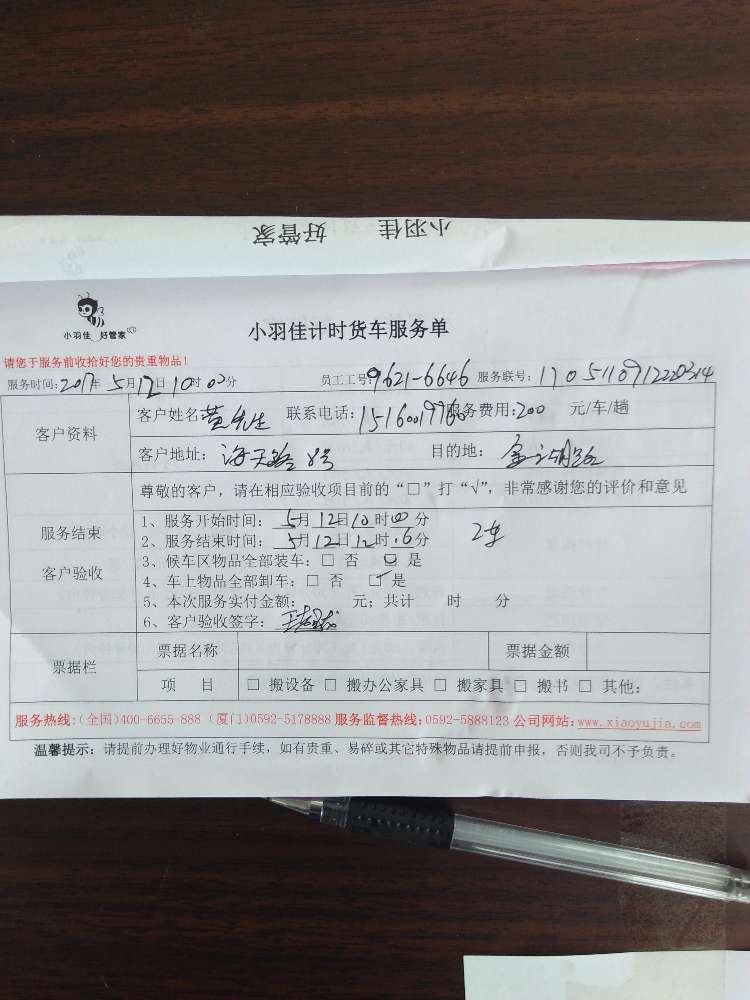 小羽佳 好管家
小羽佳 好管家
小羽佳计时货车服务单
请您于服务前收拾好您的贵重物品!
服务时间:2017年 5月12日10时00分 员工工号:9621-6646 服务联号:1705110912220314
客户资料
客户姓名:黄先生 联系电话: 服务费用:200 元/车/趟
客户地址: 海天路 8号 目的地:
服务结束
客户验收
尊敬的客户,请在相应验收项目前的“□”打“√”,非常感谢您的评价和意见
1、服务开始时间: 5月12日10时00分
2、服务结束时间: 5月12日12时.6分 2车
3、候车区物品全部装车:□ 否 □ 是
4、车上物品全部卸车:□ 否 □ 是
5、本次服务实付金额: 元;共计 时 分
6、客户验收签字:
票据栏
票据名称 票据金额
项 目 □ 搬设备 □ 搬办公家具 □ 搬家具 □ 搬书 □ 其他:
服务热线:(全国)400-6655-888 (厦门)0592-5178888 服务监督热线:0592-5888123 公司网站:www.xiaoyujia.com
温馨提示:请提前办理好物业通行手续,如有贵重、易碎或其它特殊物品请提前申报,否则我司不予负责。